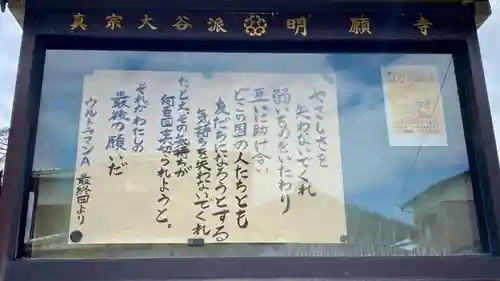 真宗大谷派 明願寺
やさしさを
失わないでくれ
弱いものをいたわり
互いに助け合い
どこの国の人たちとも
友だちになろうとする
気持ちを失わないでくれ
たとえ、その気持ちが
何百回裏切られようと。
それがわたしの
最後の願いだ
ウルトラマンA 最終回より